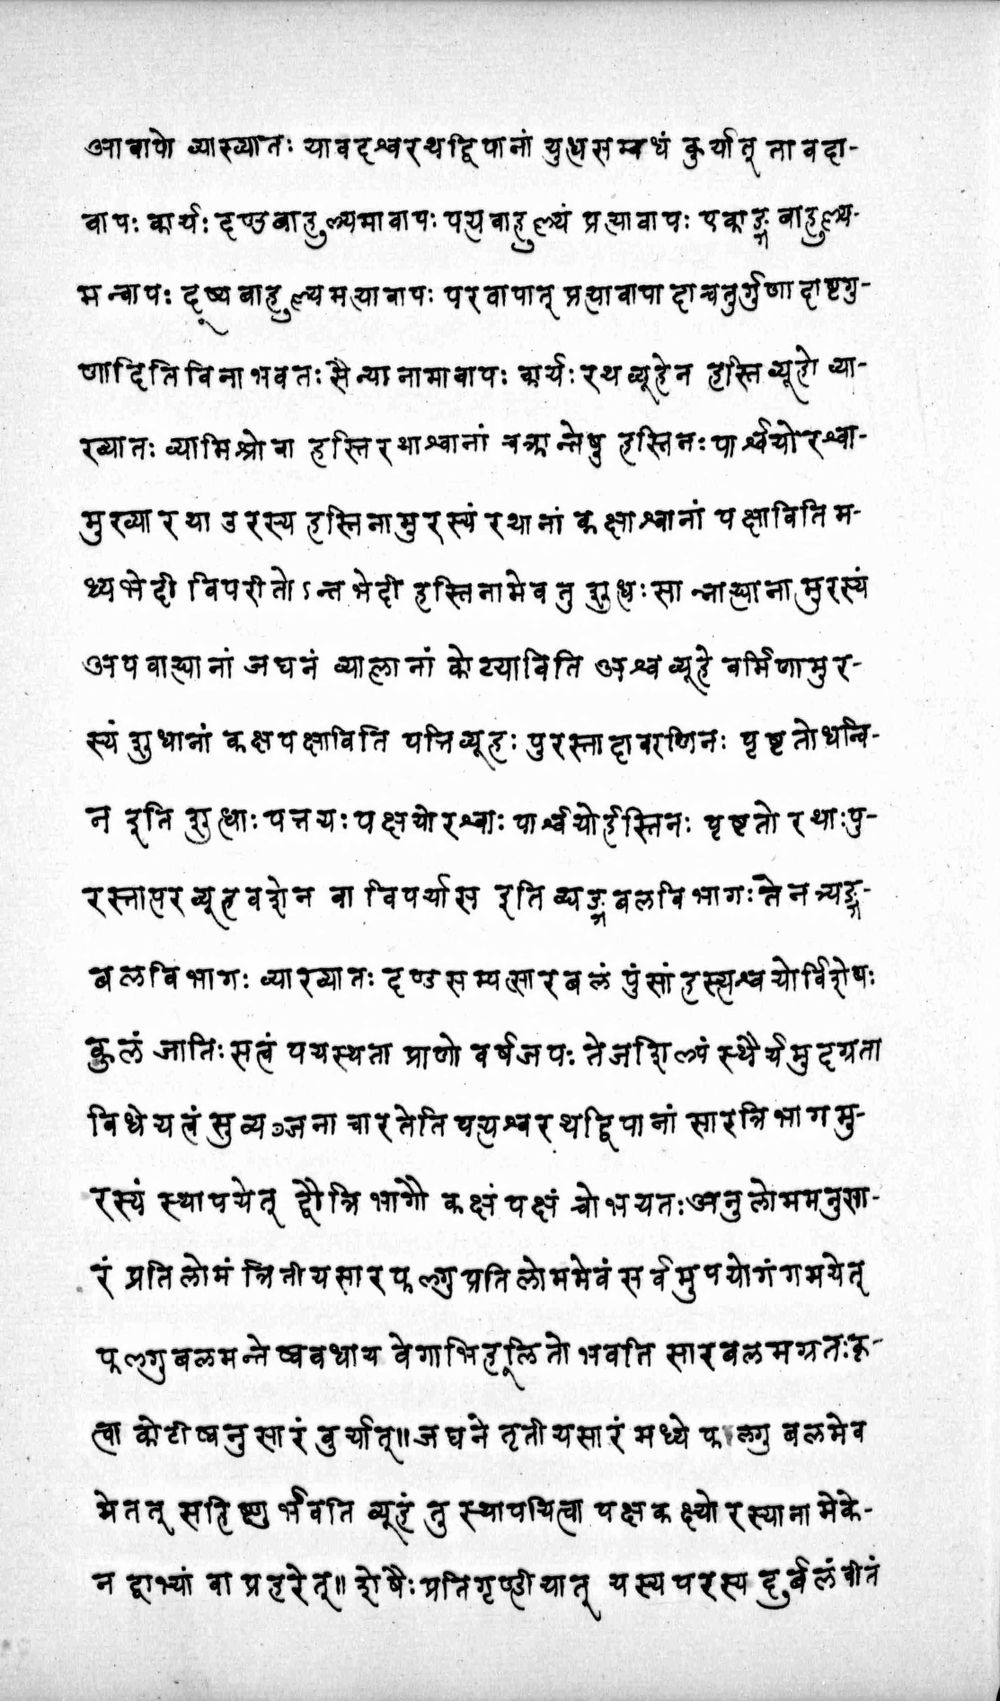 आवापो व्याख्यातः यावदश्वरथद्विपानां युग्रसम्बधं कुर्यात् तावदा-
वापः कार्यः दण्डबाहुल्यमावापः पत्यबाहुल्यं प्रत्यावापः एकाङ्गबाहुल्य-
मन्वापः दूष्यबाहुल्यमत्यावापः परवापात् प्रत्यावापादाच्चतुर्गुणादाष्टगु-
णादितिविनाभवतः सैन्यानामावापः कार्यः रथव्यूहेन हस्तिव्यूहो व्या-
ख्यातः व्यामिश्रोवा हस्तिरथाश्वानां चक्रान्तेषु हस्तिनः पार्श्वयोरश्वा-
मुख्यारथा उरस्य हस्तिनामुरस्यं रथानां कक्षाश्वानां पक्षाविति म-
ध्यभेदी विपरीतोऽन्तभेदी हस्तिनामेवतु शुधः सान्नाह्यानामुरस्यं
अपवाह्यानां जघनं व्यालानां कोट्याविति अश्वव्यूहे वर्मिणामुर-
स्यं शुधानां कक्षपक्षाविति पत्तिव्यूहः पुरस्तादावरणिनः पृष्टतोधन्वि-
न इति शुधाः पत्तयः पक्षयोरश्वाः पार्श्वयोर्हस्तिनः पृष्टतो रथाः पु-
रस्तात्परव्यूहवशेन वा विपर्यास इति द्व्यङ्गबलविभागः तेनत्र्यङ्ग-
बलविभागः व्याख्यातः दण्डसम्पत्सारबलं पुंसां हस्त्यश्वयोर्विशेषः
कुलं जातिः सत्वं वयस्थता प्राणो वर्षजपः तेजशिल्पं स्थैर्यमुदग्रता
विधेयत्वं सुव्यञ्जनाचारतेति पत्यश्वरथद्विपानां सारत्रिभागमु-
रस्यं स्थापयेत् द्वौत्रिभागौ कक्षं पक्षं चोभयतः अनुलोममनुसा-
रं प्रतिलोमं त्रितीयसारफल्गुप्रतिलोममेवं सर्वमुपयोगंगमयेत्
फल्गुबलमन्तेष्ववधाय वेगाभिहूलितो भवति सारबलमग्रतः कृ-
त्वा कोटीष्वनुसारं कुर्यात्॥ जघने तृतीयसारं मध्ये फल्गुबलमेव
मेतत् सहिष्णुर्भवति व्यूहं तु स्थापयित्वा पक्षकक्ष्योरस्यानामेके-
न द्वाभ्यां वा प्रहरेत्॥ शेषैः प्रतिगृण्हीयात् यस्य परस्य दुर्बलं वीतं